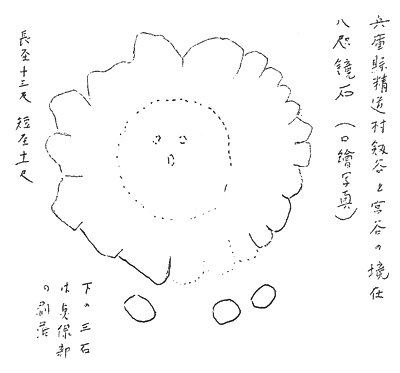 兵庫縣精道村剱谷と宮谷の境在
八咫鏡石(口繪写真)
長径十三尺 短径十一尺
下の三石
は貞係部
の剥落